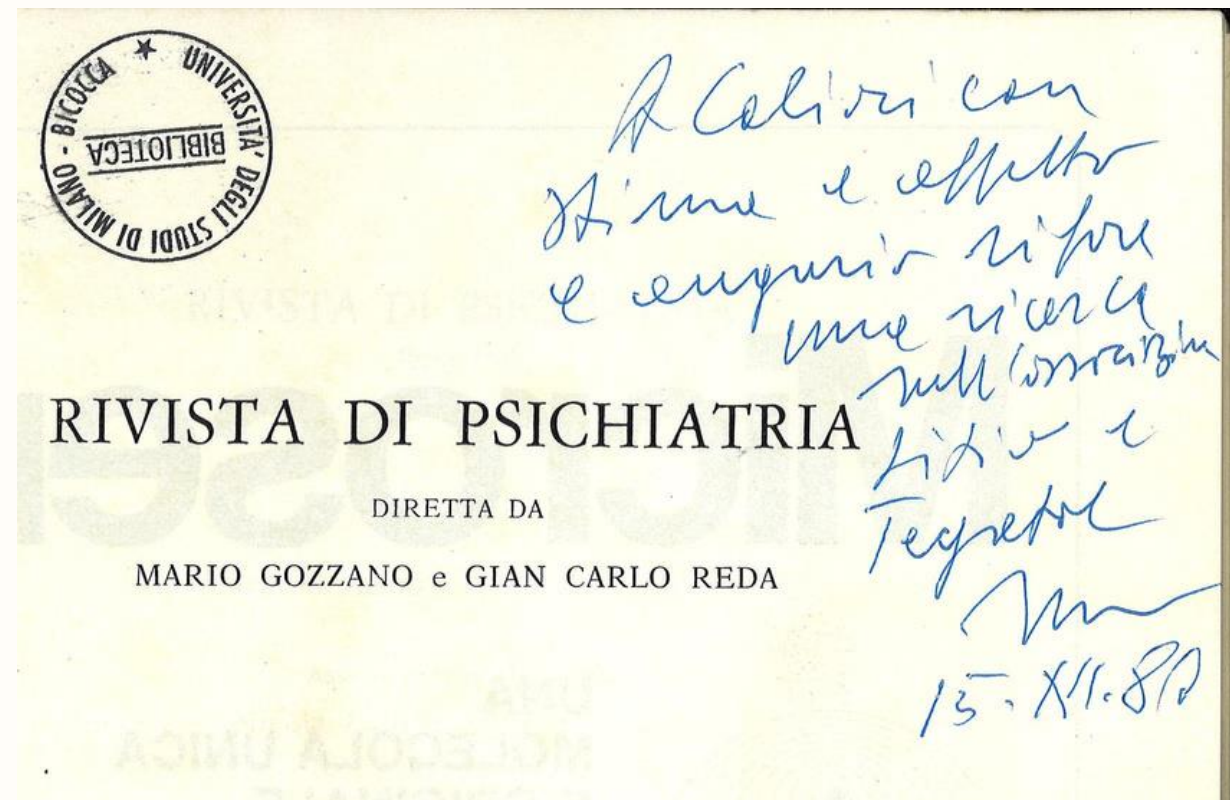 UNIVERSITA' DEGLI STUDI DI MILANO - BICOCCA
BIBLIOTECA
A con
stima e affetto
e augurio di fare
una ricerca
sull'associazione
litio e
Tegretol
15.XII.80
RIVISTA DI PSICHIATRIA
DIRETTA DA
MARIO GOZZANO e GIAN CARLO REDA
UNA
MOLECOLA UNICA